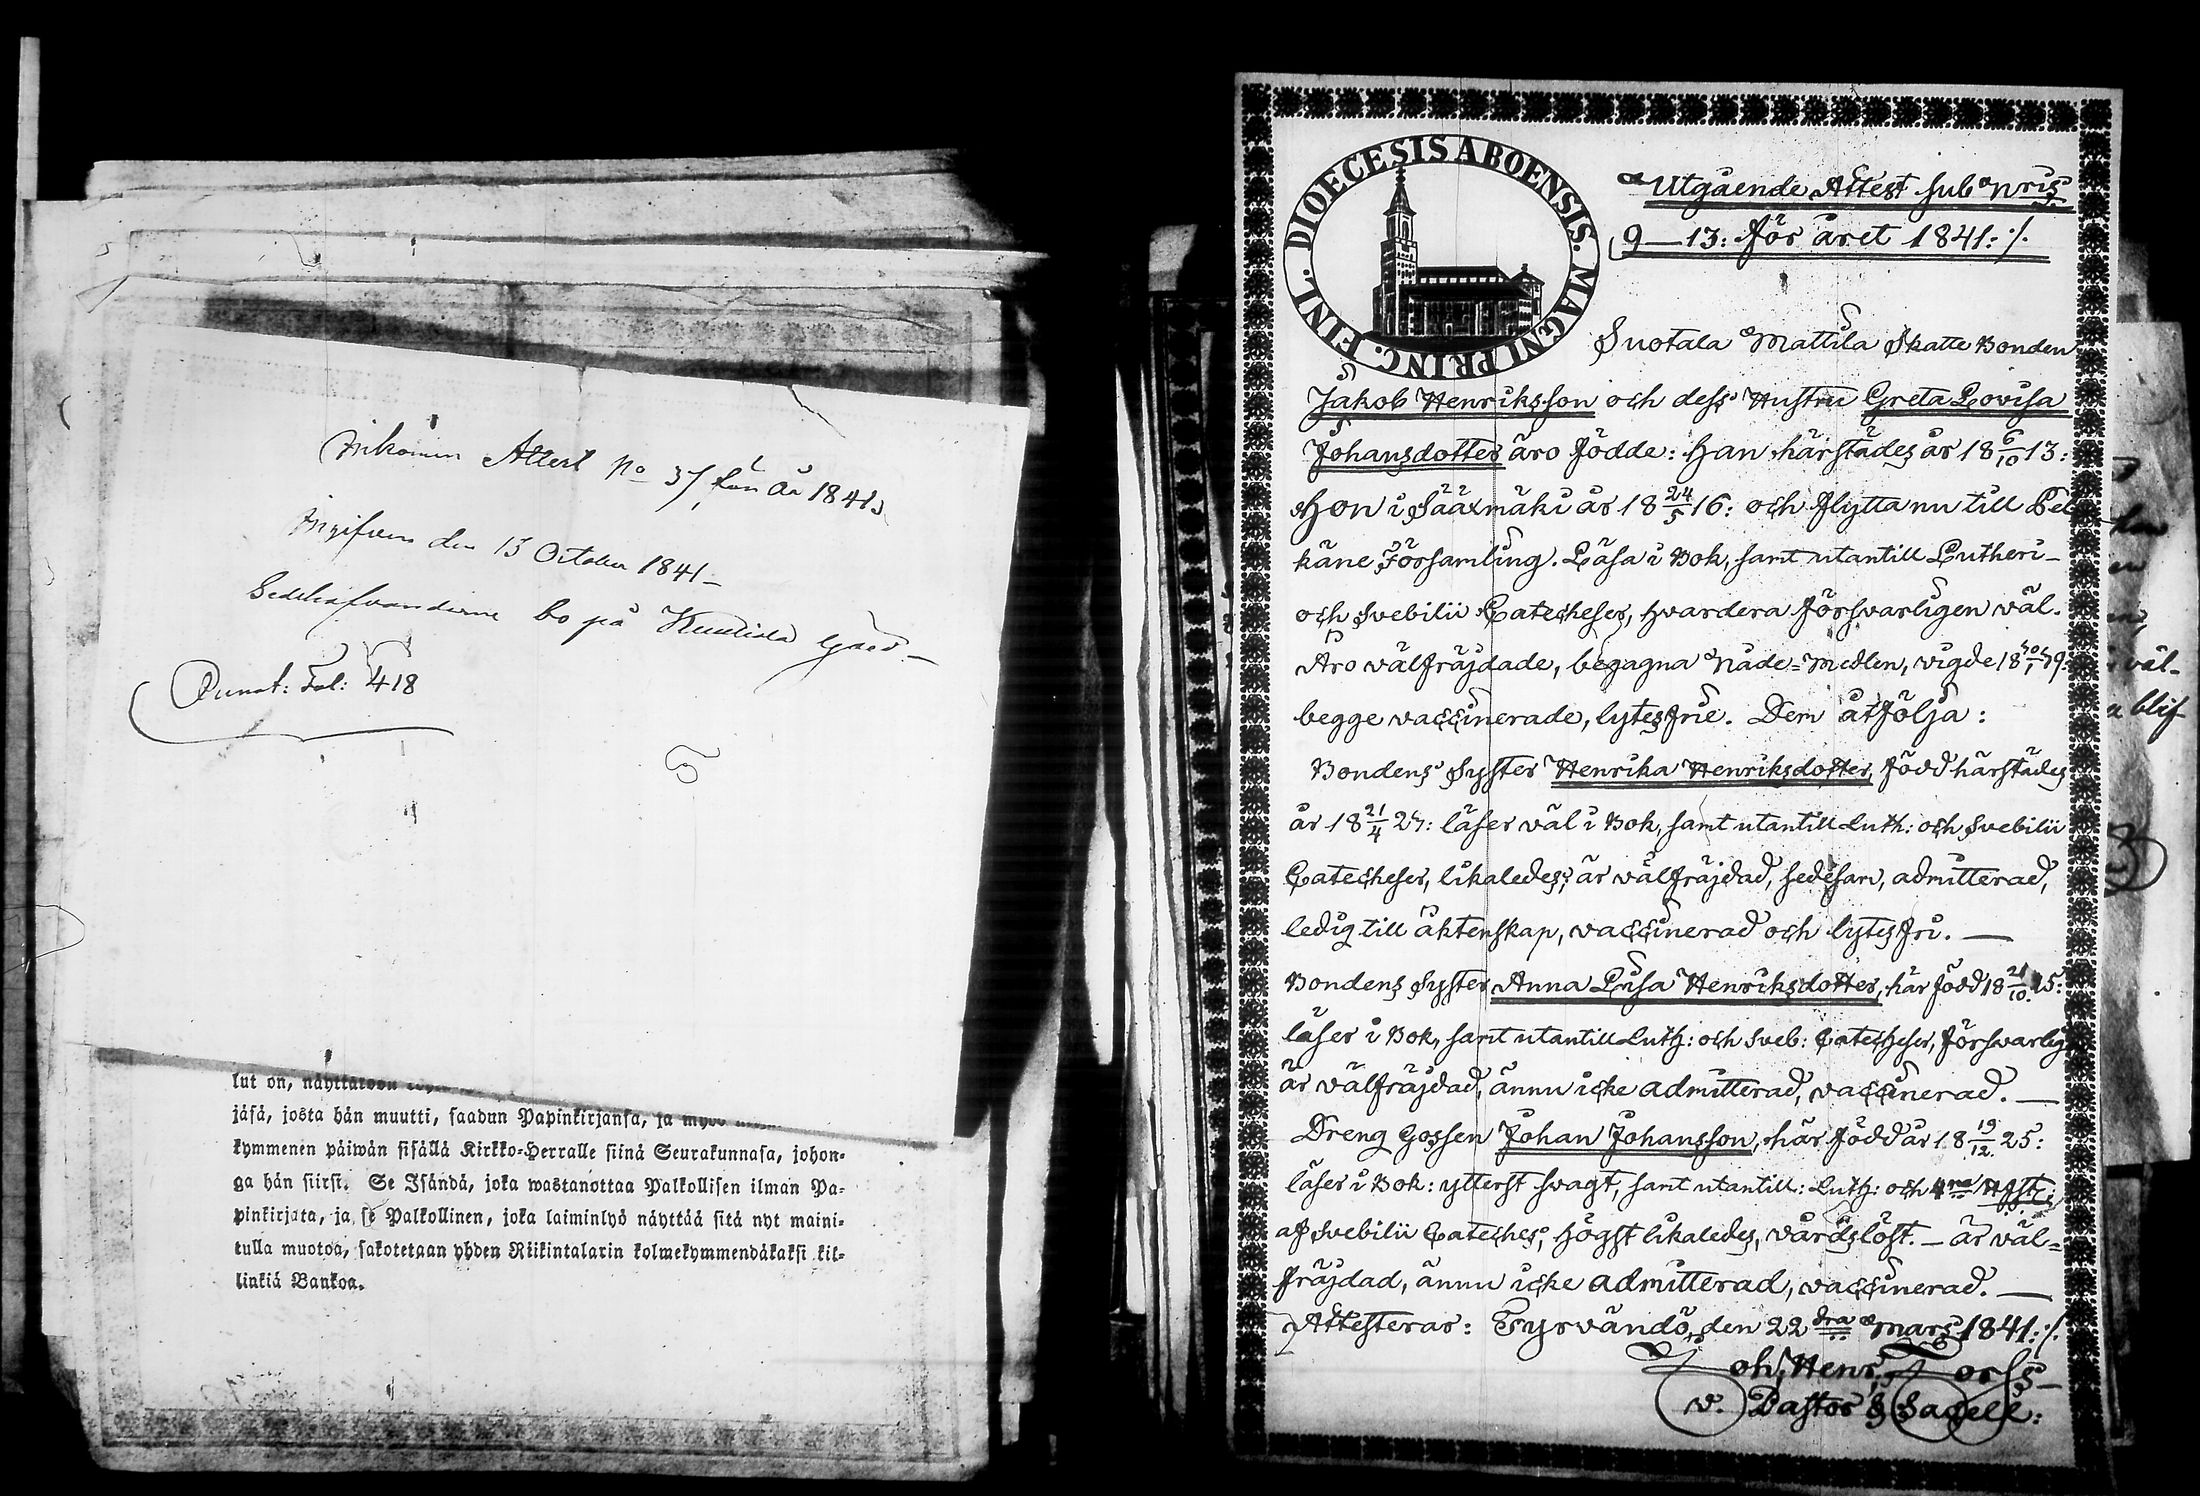 Inkommen Attest No 37 för år 1841.
Ingifven den 13 October 1841 –
Sedelhafvanderne bo på gård –
Annot: Fol: 418
lut on, näyttäköön
jäsä, josta hän muutti, saadun Papinkirjansa, ja myös
kymmenen päiwän sisällä Kirkko-Herralle siinä Seurakunnasa, johon-
ga hän siirsi. Se Isändä, joka wastanottaa Palkollisen ilman Pa-
pinkirjata, ja se Palkollinen, joka laiminlyö näyttää sitä nyt maini-
tulla muotoa, sakotetaan yhden Riikintalarin kolmekymmendäkaksi kil-
linkiä Bankoa.
DIOECESIS ABOENSIS. MAGNI PRINC. FINL.
Utgående Attest sub Nris
9–13: för året 1841: ./.
Suotala Mattila Skatte Bonden
Jakob Henriksson och dess Hustru Greta Lovisa
Johansdotter äro födde: Han härstädes år 18 6/10 13:
Hon i Sääxmäki år 18 24/5 16: och flytta nu till Pel
käne Församling. Läsa i Bok, samt utantill Lutheri-
och Svebilii Catecheser, hvardera försvarligen väl.
Äro välfräjdade, begagna Nåde=Medlen, vigde
begge vaccinerade, lytesfrie. Dem åtfölja:
Bondens Syster Henrika Henriksdotter, född härstädes
år 18 21/4 27: läser väl i Bok, samt utantill Luth: och Svebilii
Catecheser, likaledes; är välfräjdad, sedesam, admitterad,
ledig till äktenskap, vaccinerad och lytesfri. —
Bondens Syster Anna Lisa Henriksdotter, här född 18 21/10 25:
läser i Bok, samt utantill Luth: och Sveb: Catecheser, försvarlig
är välfräjdad, ännu icke admitterad, vaccinerad. —
Dreng Gossen Johan Johansson, här född år 18 19/12 25:
läser i Bok: ytterst svagt, samt utantill: Luth: och 4ra
af Svebilii Cateches; högst likaledes, vårdslöst. – är väl=
fräjdad, ännu icke admitterad, vaccinerad. —
Attesteras: Tyrvändö, den 22dra Mars 1841: ./.
Joh. Henr. Forss
v. Pastor & Sacell:
väl-
blif